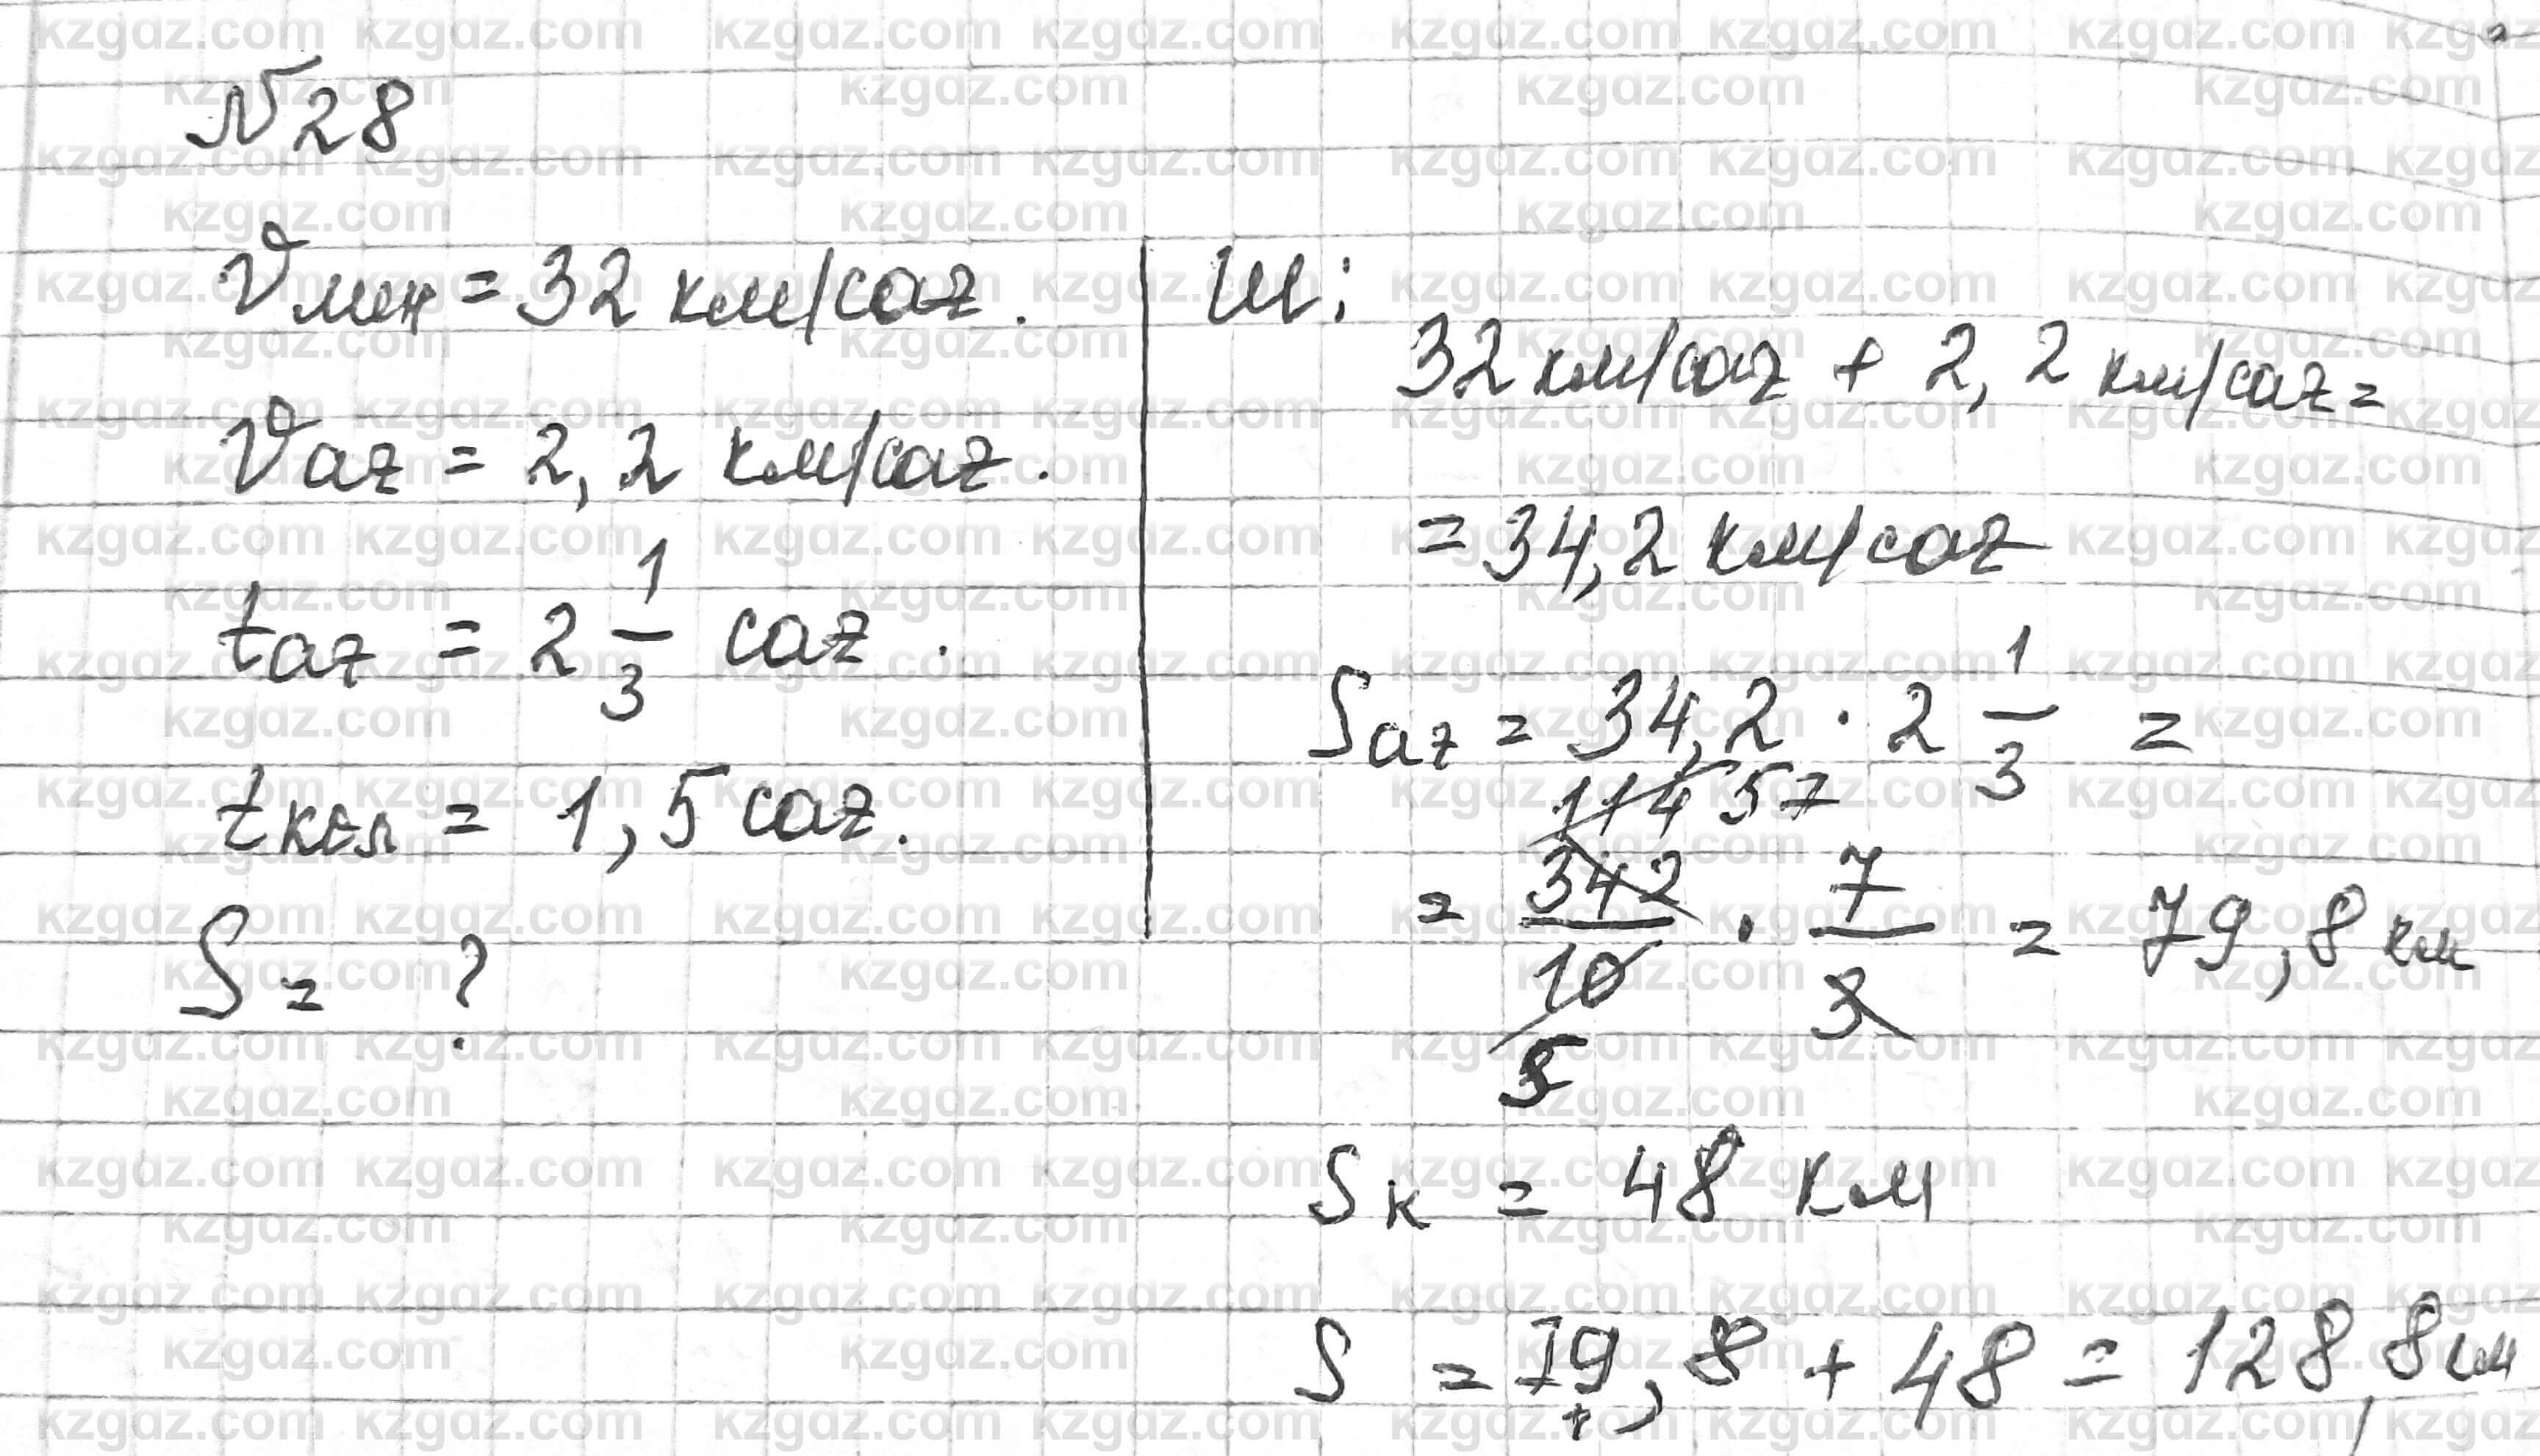 №28
Vмен = 32 км/сағ.
Vағ = 2,2 км/сағ.
tағ = 2 1/3 сағ.
tкөл = 1,5 сағ.
S = ?
Ш:
32 км/сағ + 2,2 км/сағ =
= 34,2 км/сағ
Sағ = 34,2 · 2 1/3 =
114 57
= 342/10 · 7/3 = 79,8 км
5
Sк = 48 км
S = 79,8 + 48 = 128,8 км
kzgdz.com